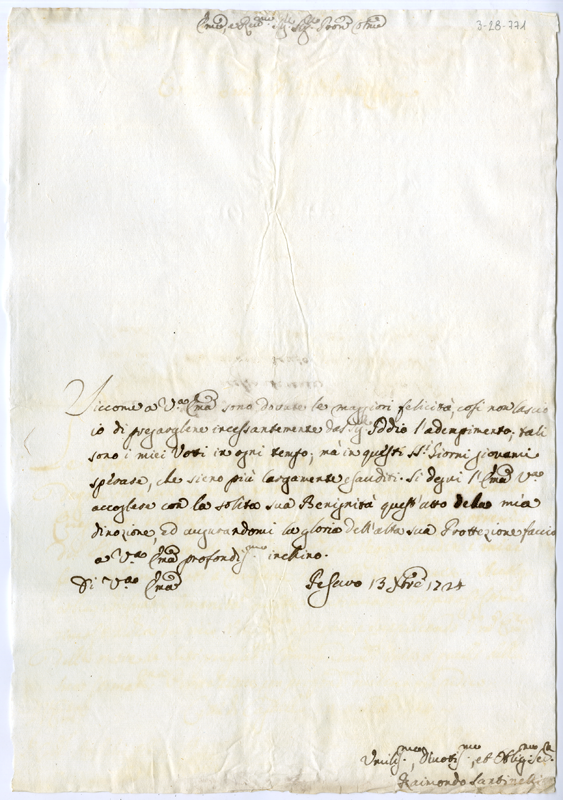 3-28-771
Em̃o, e Rev.mo Sig.r Sig.r Pron Colmo
Siccome a V.ra Em̃a sono dovute le maggiori felicità, così non lascio
io di pregargliene incessantemente dal Sig.r Iddio l'adempimento; tali
sono i miei Voti in ogni tempo, mà in questi S.ti Giorni giovami
sperare, che sieno più largamente esauditi. Si degni l'Em̃a V.ra
accogliere con la solita sua Benignità quest'atto della mia
divozione, ed augurandomi la gloria dell'alta sua Protezione faccio
a V.ra Em̃a profondis.mo inchino.
Di V.ra Em̃a
Pesaro 13 Xbre 1724
Umilis.mo, Divotis.mo, et Obligs.mo Ser.
Raimondo Santinelli